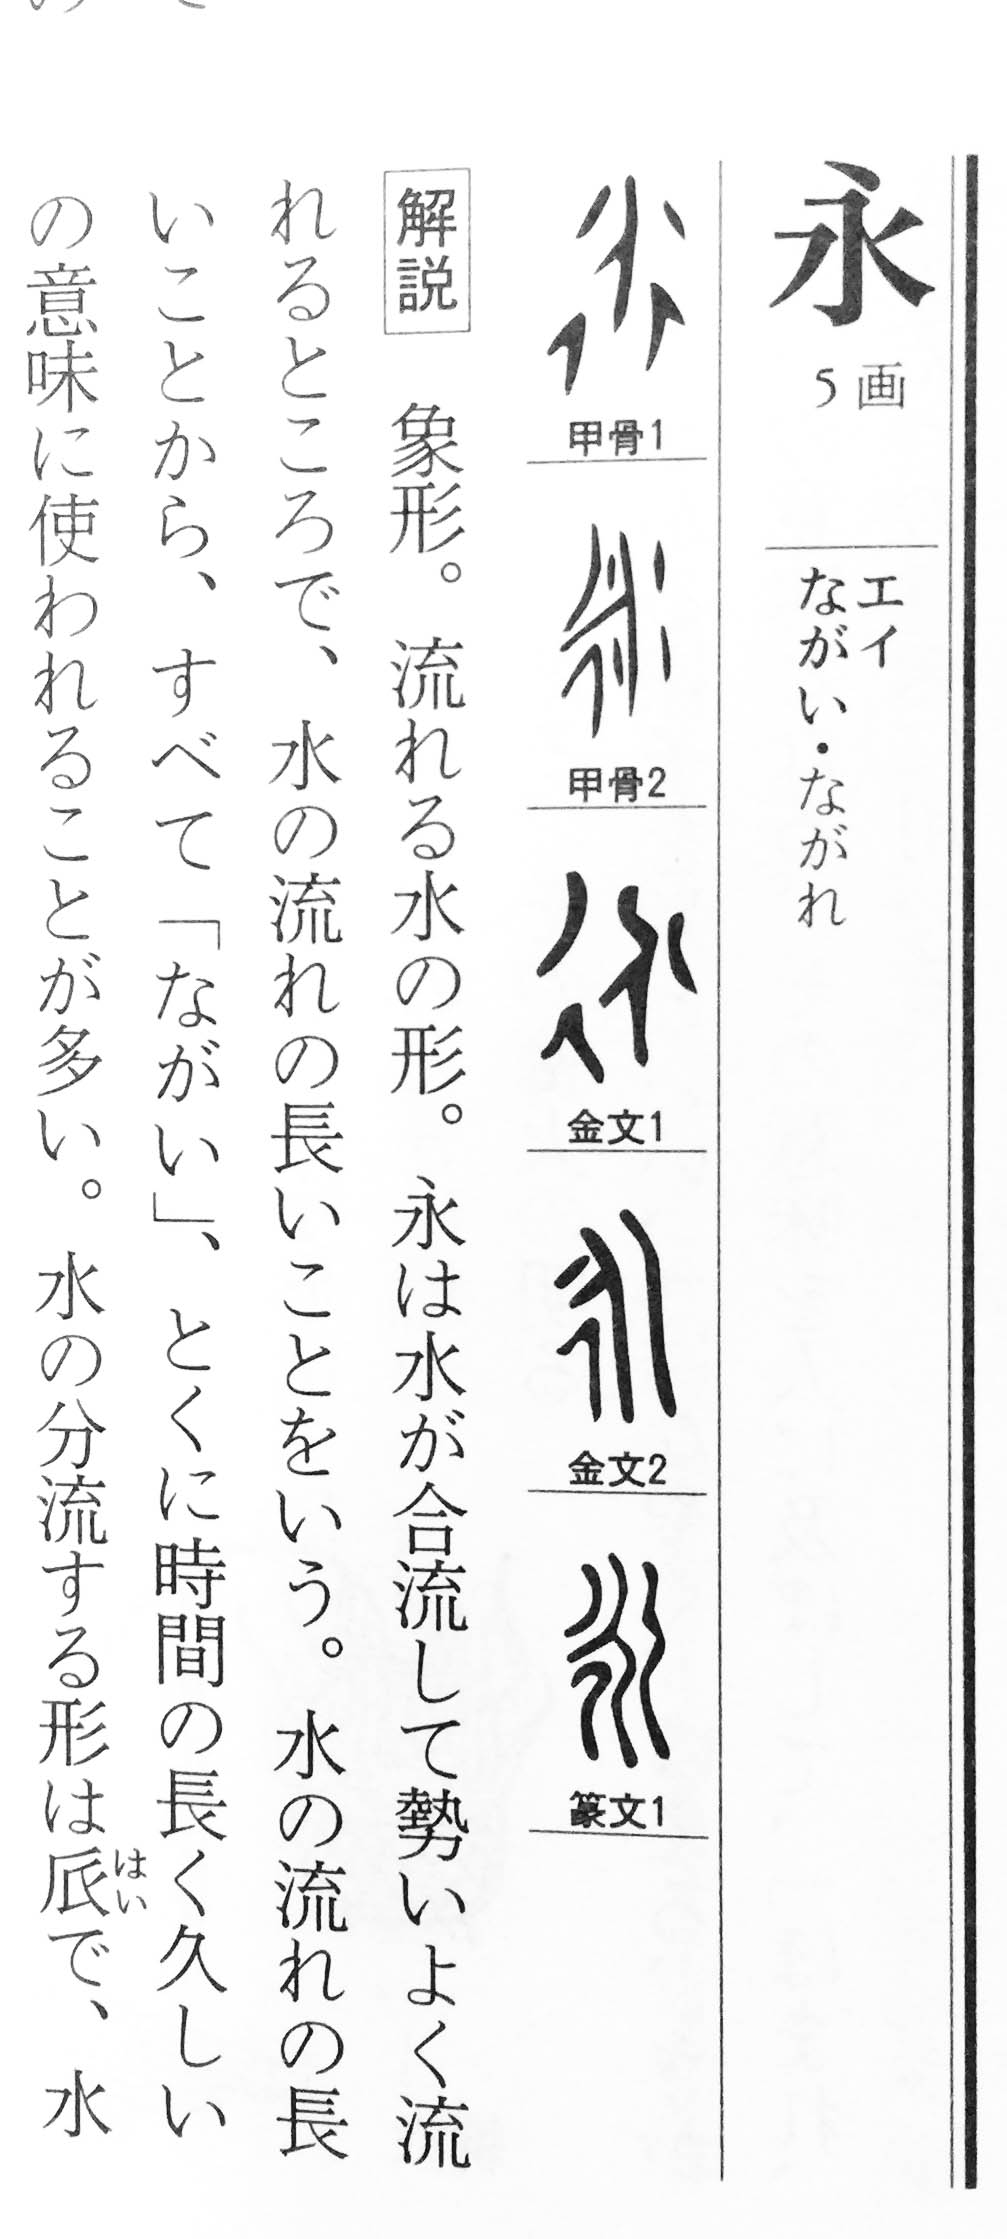 永 5画
エイ
ながい・ながれ
甲骨1
甲骨2
金文1
金文2
篆文1
解説 象形。流れる水の形。永は水が合流して勢いよく流
れるところで、水の流れの長いことをいう。水の流れの長
いことから、すべて「ながい」、とくに時間の長く久しい
の意味に使われることが多い。水の分流する形は𠂢で、水
はい